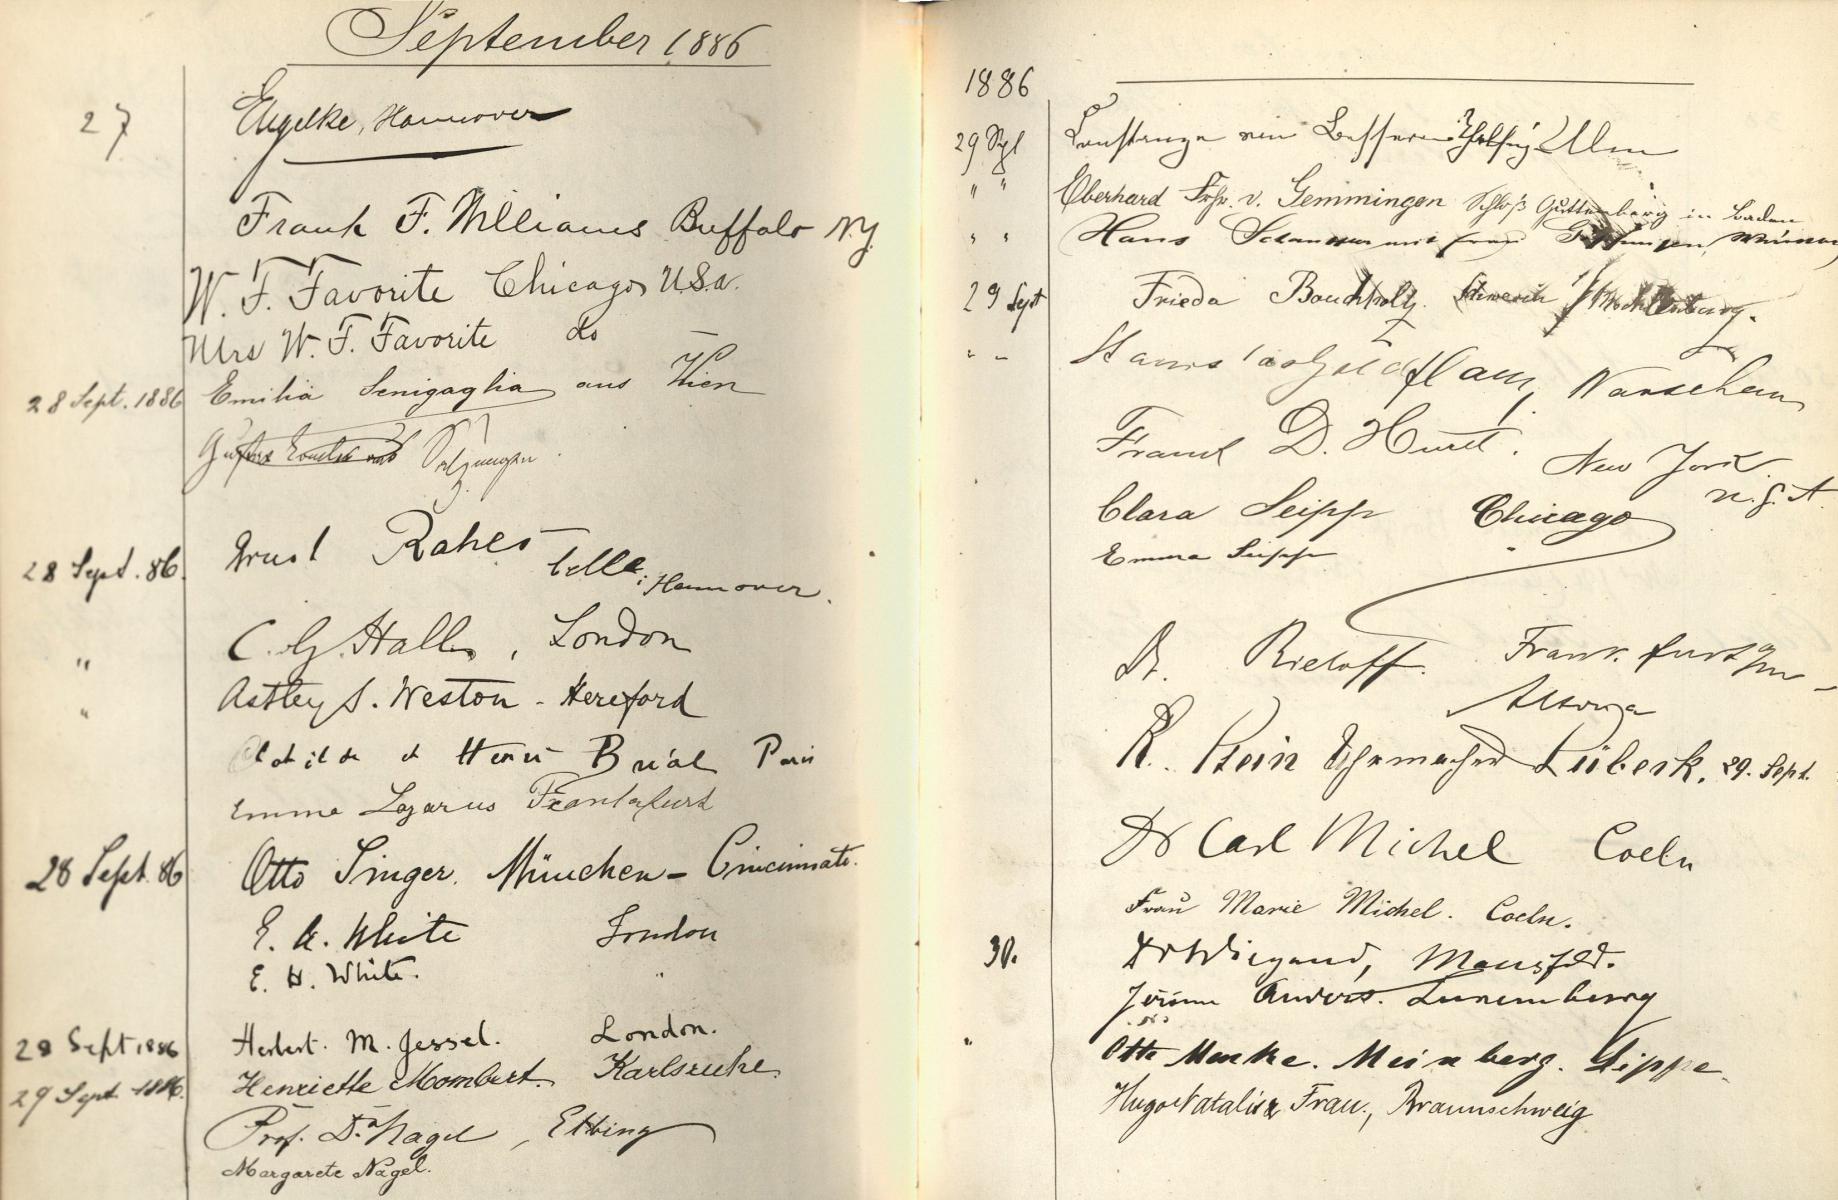 September 1886
27 Engelke, Hannover
Frank F. Williams Buffalo N.Y.
W. F. Favorite Chicago U.S.a.
Mrs W. F. Favorite do
28 Sept. 1886 Emilia Senigaglia aus Wien
Salzungen
28 Sept. 86. Ernst Rahes Celle, Hannover.
" C. G. Hall, London
" Astley S. Weston - Hereford
Clotilde et Henri Bréal Paris
Emma Lazarus Frankfurt
28 Sept. 86 Otto Singer. München - Cincinnati.
E. A. White London
E. H. White. "
28 Sept 1886 Herbert. M. Jessel. London.
29 Sept 1886. Henriette Mombert. Karlsruhe.
Prof. Dr. Nagel, Elbing
Margarete Nagel.
1886
29 Sept Ulm
" " Eberhard Frhr. v. Gemmingen Schloß Guttenberg in Baden
" " Hans mit Frau
29 Sept Frieda Bouchholtz. Schwerin i/Mecklenburg.
" " Warschau
Frank D. Hurtt. New York
U.S.A
Clara Seipp Chicago
Emma Seipp
Dr. Frankfurt
R. Stein Lübeck, 29. Sept.
Dr Carl Michel Coeln
Frau Marie Michel. Coeln.
30. Dr Wiegand, Mansfeld.
Anders. Luxemburg
" Otto Menke. Meinberg. Lippe.
Hugo Natalis & Frau., Braunschweig